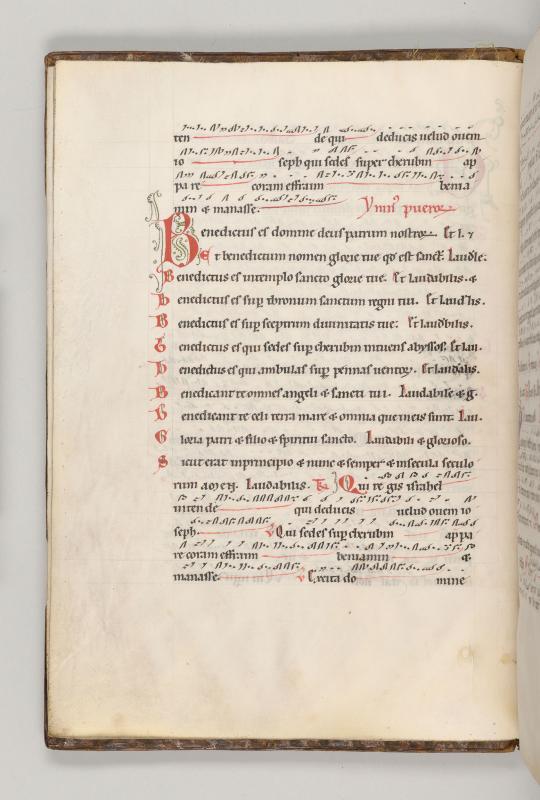 ten de qui deducis uelud ouem
io seph qui sedes super cherubin ap
pa re coram effraim benia
min & manasse. Ymnꝰ pueroꝝ
Benedictus es domine deus patrum nostroꝝ. Et l. ⁊
Et benedictum nomen glorie tue qd̕ est sanct̄. Laudle.
Benedictus es intemplo sancto glorie tue. Et laudabilis. &
Benedictus es suꝑ thronum sanctum regni tui. Et laud'lis.
Benedictus es suꝑ sceptrum diuinitatis tue. Et laud'bilis.
Benedictus es qui sedes suꝑ cherubin intuens abyssos. Et lau.
Benedictus es qui ambulas suꝑ pennas uentoꝝ. Et laudalis.
Benedicant te omnes angeli & sancti tui. Laudabile & g.
Benedicant te celi terra mare & omnia que in eis sunt. Lau.
Gloria patri & filio & spiritui sancto. Laudabili & glorioso.
Sicut erat inprincipio & nunc & semper & insecula seculo
rum am̄. Laudabilis. Qui re gis israhel
inten de qui deducis uelud ouem io
seph. ℣ Qui sedes suꝑ cherubin ap pa
re coram effraim beniamin &
manasse. ℣ Excita do mine